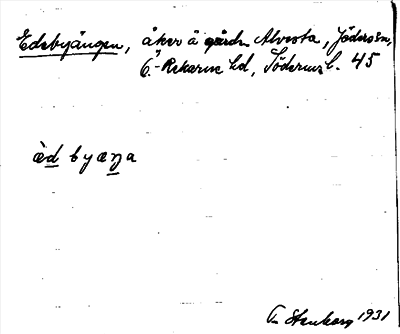 Edebyängen, åker å gården Alvesta, Jäders sn,
Ö.-Rekarne hd, Söderml. 45
èd byæŋa
Stenborg 1931